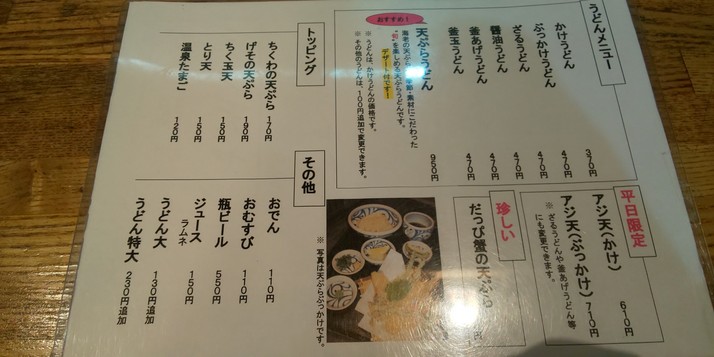 うどんメニュー
かけうどん 370円
ぶっかけうどん 470円
ざるうどん 470円
醤油うどん 470円
釜あげうどん 470円
釜玉うどん 470円
おすすめ!
天ぷらうどん 950円
海老の天ぷら 季節・素材にこだわった
"旬"を楽しめる天ぷらうどんです。
デザート付です!
※ うどんは、かけうどんの価格です。
※ その他のうどんは、100円追加で変更できます。
トッピング
ちくわの天ぷら 170円
げその天ぷら 190円
ちく玉天 150円
とり天 150円
温泉たまご 120円
平日限定
アジ天(かけ) 610円
アジ天(ぶっかけ) 710円
※ ざるうどんや釜あげうどん等
にも変更できます。
珍しい
だっぴ蟹の天ぷら
円
※ 写真は天ぷらぶっかけです。
その他
おでん 110円
おむすび 110円
瓶ビール 550円
ジュース
ラムネ 150円
うどん大 130円追加
うどん特大 230円追加